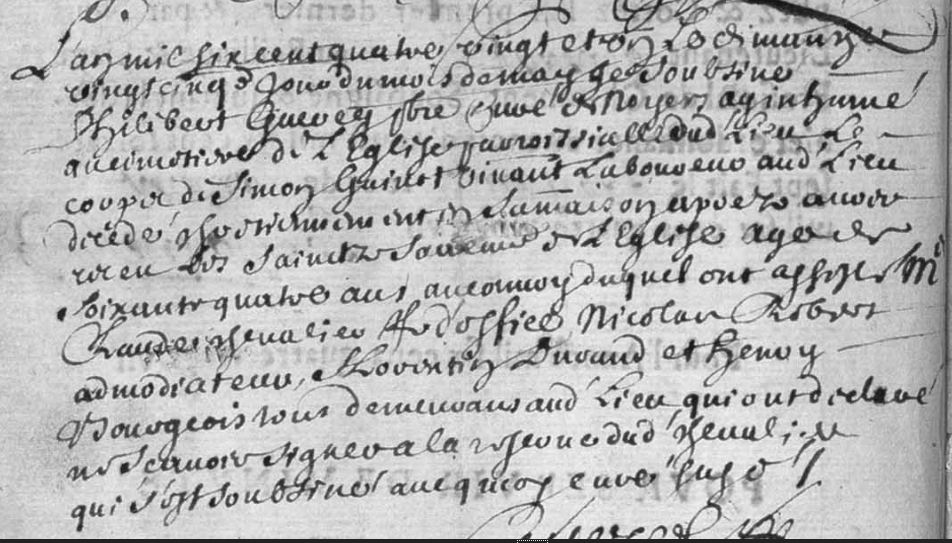 L'an mil six cent quatre vingt et on Le dimanze
vingt cinqe Jour du mois de may Je Soubsine
Philibert ptre Cure de Noyers ay inhume
au cimetiere de L'Eglise parroissialle dud Lieu Le
corps de Simon Guinot vivant Laboureur aud Lieu
decede chrestiennement en sa maison apres avoir
receu les Sainctz Sacremens de L'Eglise age de
Soixante quatre ans au convoy duquel ont assiste Mr
Claude chevalier d'office Nicolas Robert
admodiateur, Florentin Durand et Henry
Bourgeois tous demeurans aud Lieu qui ont declare
ne Scavoir signer a la reserve dud chevalier
qui s'est Soubsine avec moy Cure susd